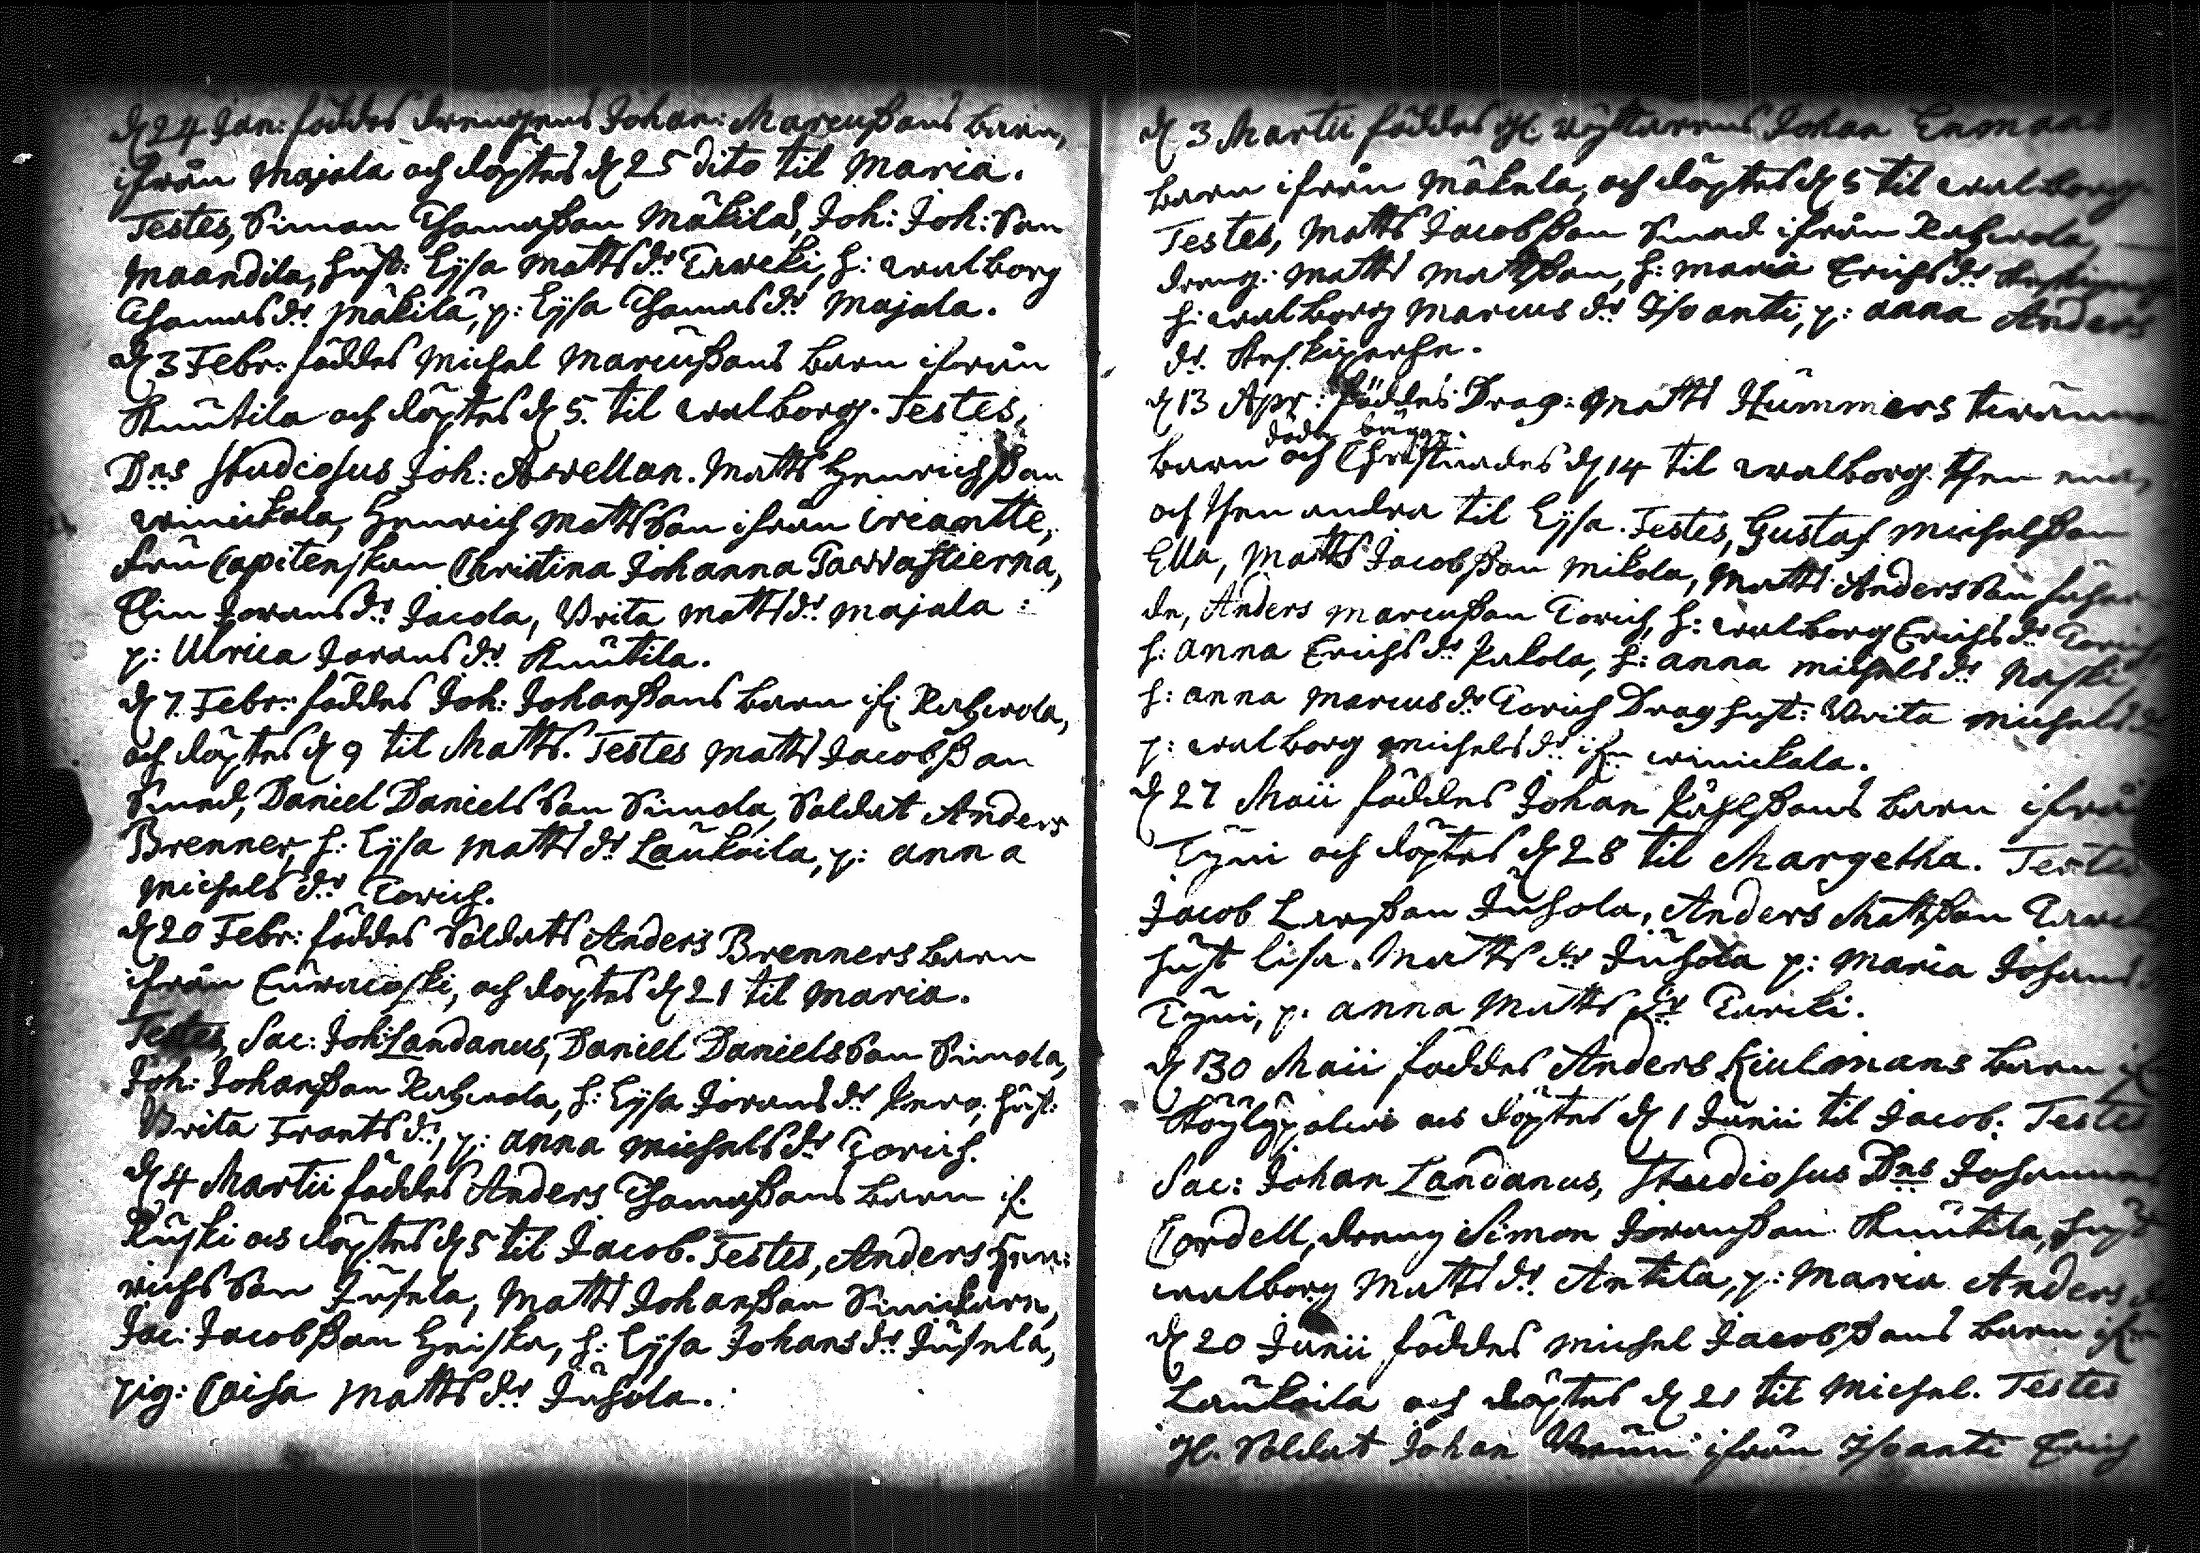 d 24 Jan: föddes drengens Johan: Marcußons barn,
ifrån Majala och döptes d 25 dito til Maria.
Testes, Simon Thomaßon Mäkilä, Joh: Joh: Son
Maandila, hust: Lysa Matts dr Tarcki, h: walborg
Thomas dr Mäkilä, p: Lysa Thomas dr Majala.
d 3 Febr: föddes Michel Marcußons barn ifrån
Knuutila och döptes d 5. til walborg. Testes,
Dns Studiosus Joh: Avellan. Matts Henrichßon
winickala, Henrich Mattsson ifrån Criantte,
Fru Capitenskan Christina Johanna Tawastierna,
Elin Jörans dr Jacola, Brita Matts dr Majala:
p: Ulrica Jörans dr Knuutila.
d 7. Febr: föddes Joh: Johanßons barn if:
och döptes d 9 til Matts. Testes Matts Jacobßon
Smed, Daniel Danielsson Simola, Soldat Anders
Brenner, h: Lysa Matts dr Laukoila, p: anna
Michels dr Torich.
d 20 Febr: föddes Soldats Anders Brenners barn
ifrån och döptes d 21 til Maria.
Testes, Sac: Joh: Landanus, Daniel Danielsson Simola,
Joh: Johanßon h: Lysa Jörans dr hust:
Brita Frants dr, p: anna Michels dr Torich.
d 4 Martii föddes Anders Thomaßons barn if:
och döptes d 5 til Jacob. Testes, Anders Hen:
richsson Jusela, Matts Johanßon
Jac: Jacobßon Heiska, h: Lysa Johans dr Jusela,
pig: Caisa Matts dr Juhola.
d 3 Martii föddes H. Johan Enmans
barn ifrån Mäkela, och döptes d 5 til walborg.
Testes, Matts Jacobßon Smed ifrån
dreng: Matts Mattßon, h: Maria Erichs dr
h: walborg Marcus dr Isoanti, p: anna Anders
dr.
d 13 Apr: föddes Drag: Matts Hummers twänne
döde bägge.
barn och Christnades d 14 til walborg then ena,
och then andra til Lysa. Testes, Gustaf Michelßon
Ella, Matts Jacobßon Mikola, Matts Andersson
Anders Marcußon Torich, h: walborg Erichs dr Torich
h: anna Erichs dr Pukola, h: anna Michels dr
h: anna Marcus dr Torich Drag hust: Brita Michels dr
p: walborg Michels dr ifrn winickala.
d 27 Maii föddes Johan Påhlßons barn ifrån
Tyni och döptes d 28 til Margetha. Testes
Jacob Larßon Juhola, Anders Mattßon
hust lisa Matts dr Juhola p: Maria Johans
Tyni, p. anna Matts dr Tarcki.
d 30 Maii föddes Anders Kiulmans barn if
Köylypolwi och döptes d 1 Junii til Jacob: Testes
Sac: Johan Landanus, Studiosus Dns Johannes
Cordell, dreng Simon Joranßon Knuutila, hust
walborg Matts dr Antila, p: Maria Anders
d 20 Junii föddes Michel Jacobßons barn ifrn
Laukoila och döptes d 21 til Michel. Testes
H. Soldat Johan ifrån Isoanti Erich